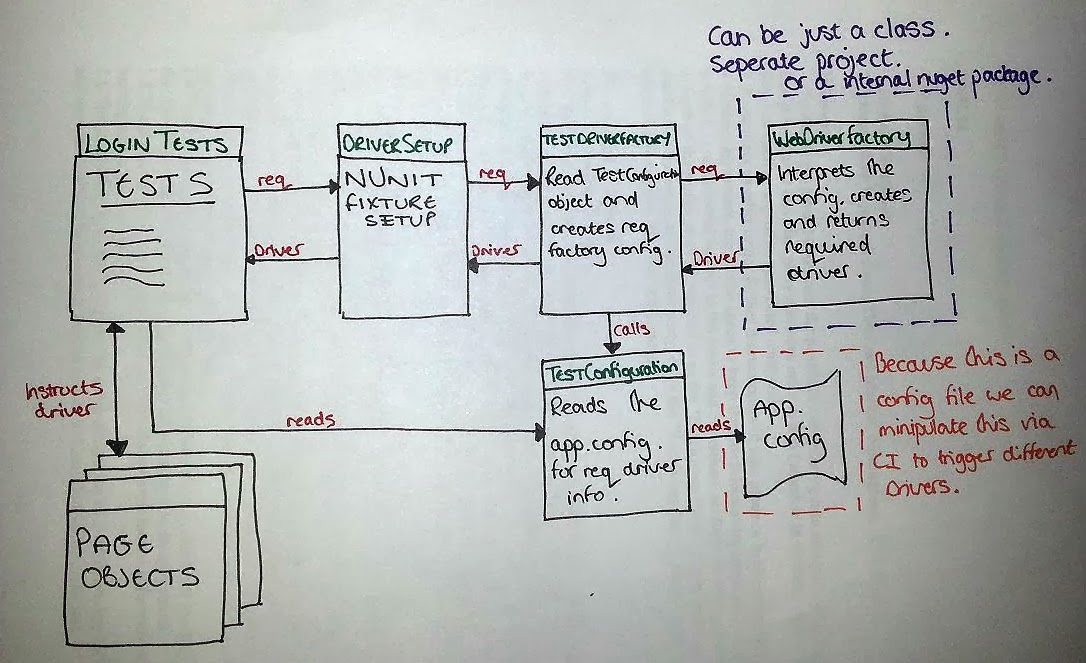 Can be just a class.
Seperate project.
or a internal nuget package.
LOGIN TESTS
TESTS
req
Driver
DRIVERSETUP
NUNIT
FIXTURE
SETUP
req
Driver
TESTDRIVERFACTORY
Read TestConfiguration
object and
creates req
factory config.
req
Driver
WebDriverFactory
Interprets the
config, creates
and returns
required
driver.
calls
Instructs
driver
reads
TESTConfiguration
Reads the
app.config.
for req driver
info.
reads
App.
config
Because this is a
config file we can
minipulate this via
CI to trigger different
Drivers.
PAGE
OBJECTS